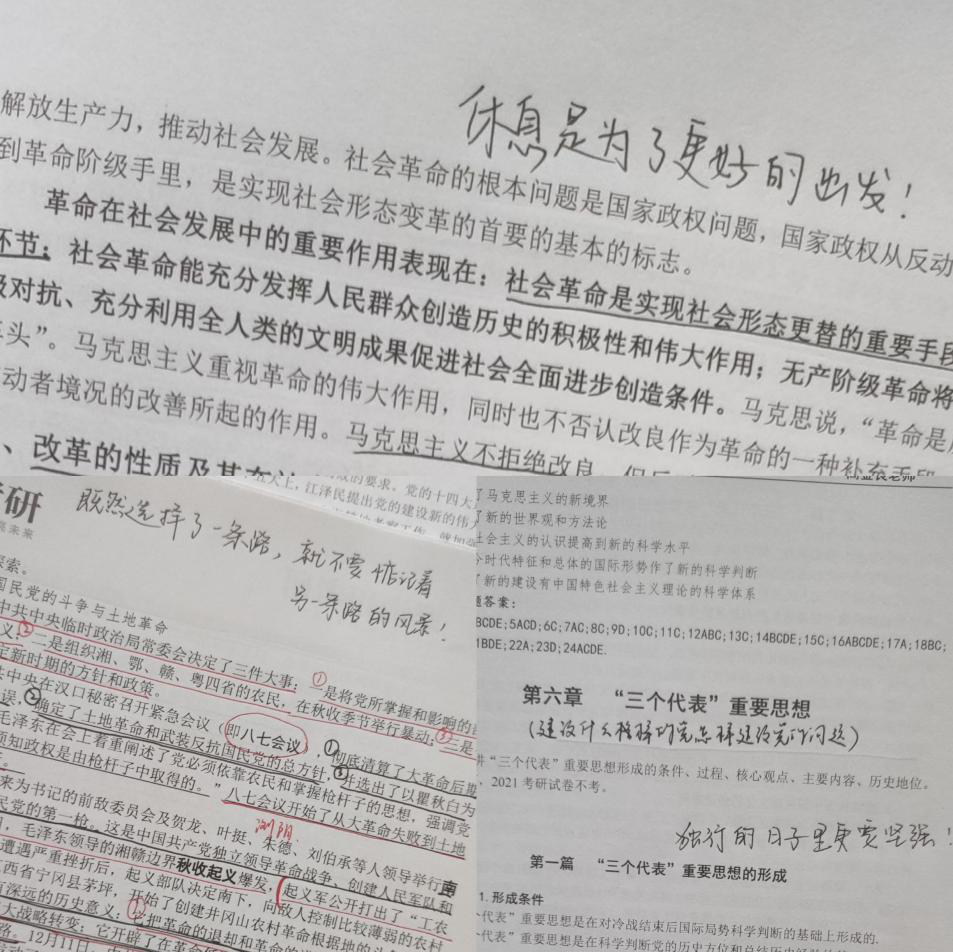 休息是为了更好的出发！
解放生产力，推动社会发展。社会革命的根本问题是国家政权问题，国家政权从反动
到革命阶级手里，是实现社会形态变革的首要的基本的标志。
革命在社会发展中的重要作用表现在：社会革命是实现社会形态更替的重要手段
环节；社会革命能充分发挥人民群众创造历史的积极性和伟大作用；无产阶级革命将
级对抗、充分利用全人类的文明成果促进社会全面进步创造条件。马克思说，“革命是
车头”。马克思主义重视革命的伟大作用，同时也不否认改良作为革命的一种补充手段
动者境况的改善所起的作用。马克思主义不拒绝改良
、改革的性质及其在
的要求。党的十四大
江泽民提出党的建设新的伟
研
未来
既然选择了一条路，就不要惦记着
另一条路的风景！
探索。
国民党的斗争与土地革命
中共中央临时政治局常委会决定了三件大事：①一是将党所掌握和影响的
义；②二是组织湘、鄂、赣、粤四省的农民，在秋收季节举行暴动；③三是
定新时期的方针和政策。
共中央在汉口秘密召开紧急会议（即八七会议），①彻底清算了大革命后期
误，②确定了土地革命和武装反抗国民党的总方针，③并选出了以瞿秋白为
毛泽东在会上着重阐述了党必须依靠农民和掌握枪杆子的思想，强调党
须知政权是由枪杆子中取得的。”八七会议开始了从大革命失败到土地
来为书记的前敌委员会及贺龙、叶挺、朱德、刘伯承等人领导举行南
民党的第一枪。这是中国共产党独立领导革命战争、创建人民军队和
毛泽东领导的湘赣边界秋收起义爆发，起义军公开打出了“工农
浏阳
遭遇严重挫折后，起义部队决定南下，向敌人控制比较薄弱的农村
西省宁冈县茅坪，开始了创建井冈山农村革命根据地的斗
深远的历史意义：①它把革命的退却和革命的
大战略转变；它开辟了在革命
12月11日
了马克思主义的新境界
了新的世界观和方法论
社会主义的认识提高到新的科学水平
今时代特征和总体的国际形势作了新的科学判断
了新的建设有中国特色社会主义理论的科学体系
题答案：
BCDE;5ACD;6C;7AC;8C;9D;10C;11C;12ABC;13C;14BCDE;15C;16ABCDE;17A;18BC;
1BDE;22A;23D;24ACDE.
第六章 “三个代表”重要思想
（建设什么样的党怎样建设党的问题）
讲“三个代表”重要思想形成的条件、过程、核心观点、主要内容、历史地位。
，2021 考研试卷不考。
独行的日子里更要坚强！
第一篇 “三个代表”重要思想的形成
1. 形成条件
个代表”重要思想是在对冷战结束后国际局势科学判断的基础上形成的.
个代表”重要思想是在科学判断党的历史方位和总结历史经验的